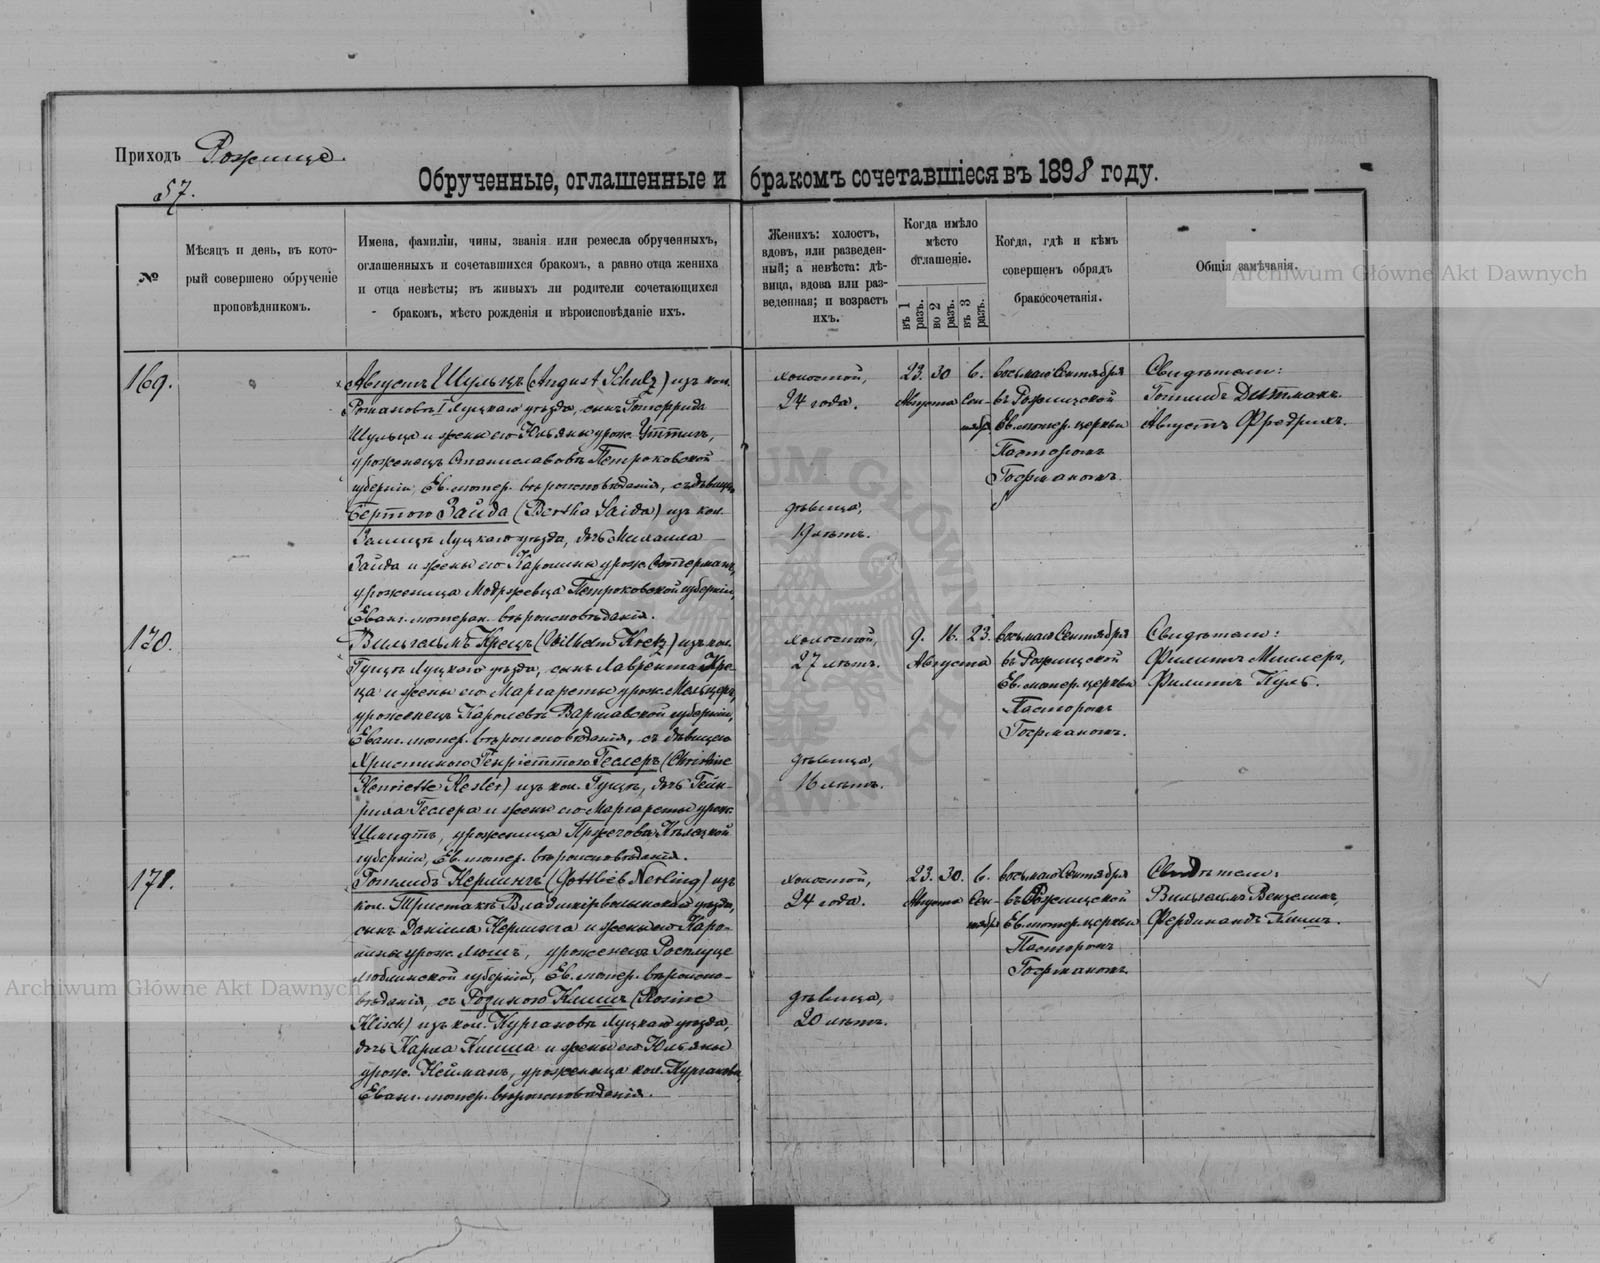 Приходъ Рожище.
57.
Обрученные, оглашенные и бракомъ сочетавшіеся въ 1898 году.
№
Мѣсяцъ и день, въ кото-
рый совершено обрученіе
проповѣдникомъ.
Имена, фамиліи, чины, званія или ремесла обрученныхъ,
оглашенныхъ и сочетавшихся бракомъ, а равно отца жениха
и отца невѣсты; въ живыхъ ли родители сочетающихся
бракомъ, мѣсто рожденія и вѣроисповѣданіе ихъ.
Женихъ: холостъ,
вдовъ, или разведен-
ный; а невѣста: дѣ-
вица, вдова или раз-
веденная; и возрастъ
ихъ.
Когда имѣло
мѣсто
оглашеніе.
въ 1 разъ.
во 2 разъ.
въ 3 разъ.
Когда, гдѣ и кѣмъ
совершенъ обрядъ
бракосочетанія.
Общія замѣчанія.
Archiwum Główne Akt Dawnych
169.
Августъ Шульцъ (August Schulz) изъ кол.
Романовъ I Луцкаго уѣзда, сынъ Готфрида
Шульца и жены его Юльяны урож. Уттихъ,
уроженецъ Станиславовъ Петроковской
губерніи, Ев. лютер. вѣроисповѣданія, съ дѣвицею
Бертою Зайда (Bertha Saida) изъ кол.
Луцкаго уѣзда, дочь Михаила
Зайда и жены его Каролины урож.
уроженица Модржевца Петроковской губерніи,
Еванг. лютеран. вѣроисповѣданія.
холостой,
24 года.
дѣвица,
19 лѣтъ.
23. 30 6.
Августа Сен-
тября
восьмаго Сентября
въ Рожищской
Ев. лютер. церкви
Пасторомъ
Госрманомъ.
Свидѣтели:
Готлибъ Дитманъ.
Августъ Фредрихъ.
170.
Вильгельмъ Крецъ (Wilhelm Kretz) изъ кол.
Гущъ Луцкаго уѣзда, сынъ Лаврентія Кре-
ца и жены его Маргареты урож. Мельцеръ,
уроженецъ Королевъ Варшавской губерніи,
Еванг. лютер. вѣроисповѣданія, съ дѣвицею
Христиною Генріеттою Геслеръ (Christine
Henriette Hesler) изъ кол. Гущъ, дочь Гейн-
риха Геслера и жены его Маргареты урож.
Шмидтъ, уроженица Пржегова Кѣлецкой
губерніи, Ев. лютер. вѣроисповѣданія.
холостой,
27 лѣтъ.
дѣвица,
16 лѣтъ.
9. 16. 23.
Августа
восьмаго Сентября
въ Рожищской
Ев. лютер. церкви
Пасторомъ
Госрманомъ.
Свидѣтели:
Филиппъ Миллеръ,
Филиппъ Куль.
171.
Готлибъ Нерлингъ (Gottlieb Nerling) изъ
кол. Тристакъ Владимірволынскаго уѣзда,
сынъ Даніила Нерлинга и жены его Каро-
лины урож. Люшъ, уроженецъ
Люблинской губерніи, Ев. лютер. вѣроиспо-
вѣданія, съ Розиною Клишъ (Rosine
Klisch) изъ кол. Кургановъ Луцкаго уѣзда,
дочь Карла Клиша и жены его Юльяны
урож. Нейманъ, уроженица кол. Кургановъ
Еванг. лютер. вѣроисповѣданія.
холостой,
24 года.
дѣвица,
20 лѣтъ.
23. 30. 6.
Августа Сен-
тября
восьмаго Сентября
въ Рожищской
Ев. лютер. церкви
Пасторомъ
Госрманомъ.
Свидѣтели:
Вильгельмъ Вензелик,
Фердинандъ Клишъ.
Archiwum Główne Akt Dawnych